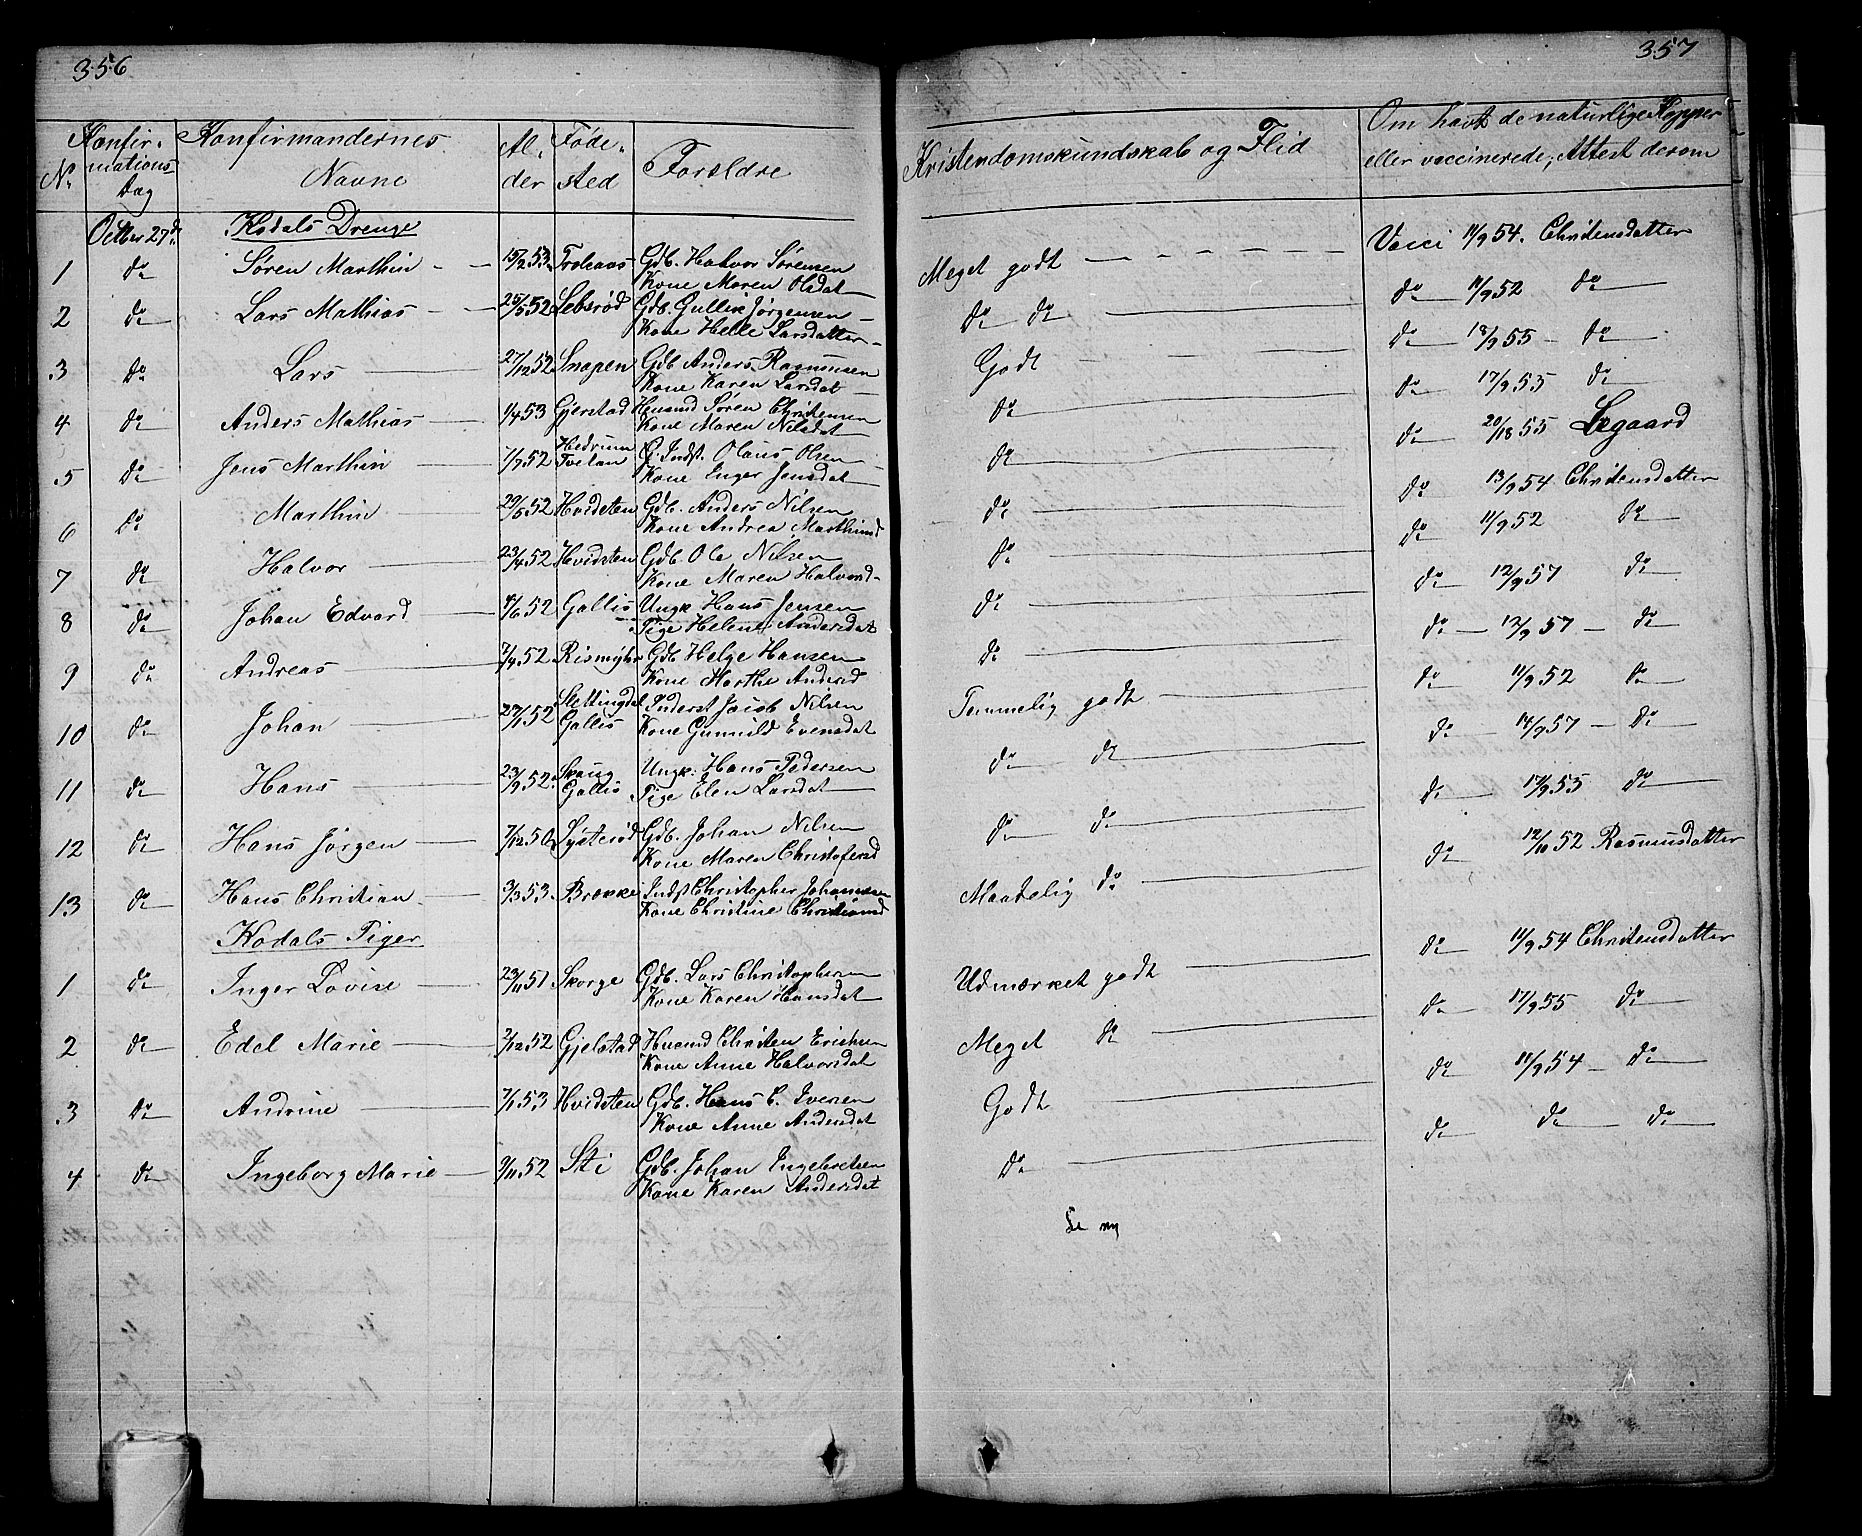 356
Konfir-
mations
Dag
No
Konfirmandernes
Navne
Al-
der
Føde-
sted
Forældre
Octber 27d.
Kodals Drenge
1 do Søren Marthin 15/2 53 Trolsaas Gdb. Halvor Sørensen
Kone Maren Olsdat
2 do Lars Mathias 25/5 52 Lebsrød Gdb. Gullik Jørgensen
Kone Helle Larsdatter
3 do Lars 27/12 52 Snapen Gdb Anders Rasmussen
Kone Karen Larsdat
4 do Anders Mathias 1/4 53 Gjerstad Huusmd Søren Christensen
Kone Maren Nilsdat
5 do Jens Marthin 1/7 52 Hedrum
Tvetan G. Indst. Olaus Olsen
Kone Inger Jensdat
6 do Marthin 29/5 52 Hvidsten Gdb. Anders Nilsen
Kone Andrea Marthinsd
7 do Halvor 23/4 52 Hvidsten Gdb Ole Nilsen
Kone Maren Halvorsd
8 do Johan Edvard 4/6 52 Gallis Ungk Hans Jensen
Pige Helene Andersdat
9 do Andreas 7/4 52 Rismyhr Gdb Helge Hansen
Kone Marthe Andersd
10 do Johan 27/1 52 Slettingdal
Gallis Inderst Jacob Nilsen
Kone Gunnild Evensdat
11 do Hans 23/9 52 Skaug
Gallis Ungk: Hans Pedersen
Pige Elen Larsdat
12 do Hans Jørgen 7/12 50 Lysterød Gdb. Johan Nilsen
Kone Maren Christofersd
13 do Hans Christian 3/3 53 Brække Indst Christopher Johannesen
Kone Christine Christiansd
Kodals Piger
1 do Inger Lovise 23/11 51 Skorge Gdb. Lars Christophersen
Kone Karen Hansdat
2 do Edel Marie 7/12 52 Gjelstad Huusmd Christen Erichsen
Kone Anne Halvorsdat
3 do Andrine 7/1 53 Hvidsten Gdb. Hans C. Iversen
Kone Anne Andersdat
4 do Ingeborg Marie 9/11 52 Sti Gdb. Johan Ingebretsen
Kone Karen Andersdat
357
Kristendomskundskab og Flid
Om havt de naturlige Kopper
eller vaccinerede, Attest derom
Meget godt Vacci 11/9 54. Christensdatter
do do do 11/9 52 do
Godt do 18/9 55 do
do do 17/9 55 do
do do 20/18 55 Løgaard
do do 13/9 54 Christensdatter
do do 11/9 52 do
do do 12/9 57 do
do do 12/9 57 do
Temmelig godt do 11/9 52 do
do do do 14/9 57 do
do do do 17/9 55 do
Maadelig do do 12/10 52 Rasmusdatter
Udmærket godt do 11/9 54 Christensdatter
Meget do do 17/9 55 do
Godt do 11/9 54 do
do do do do